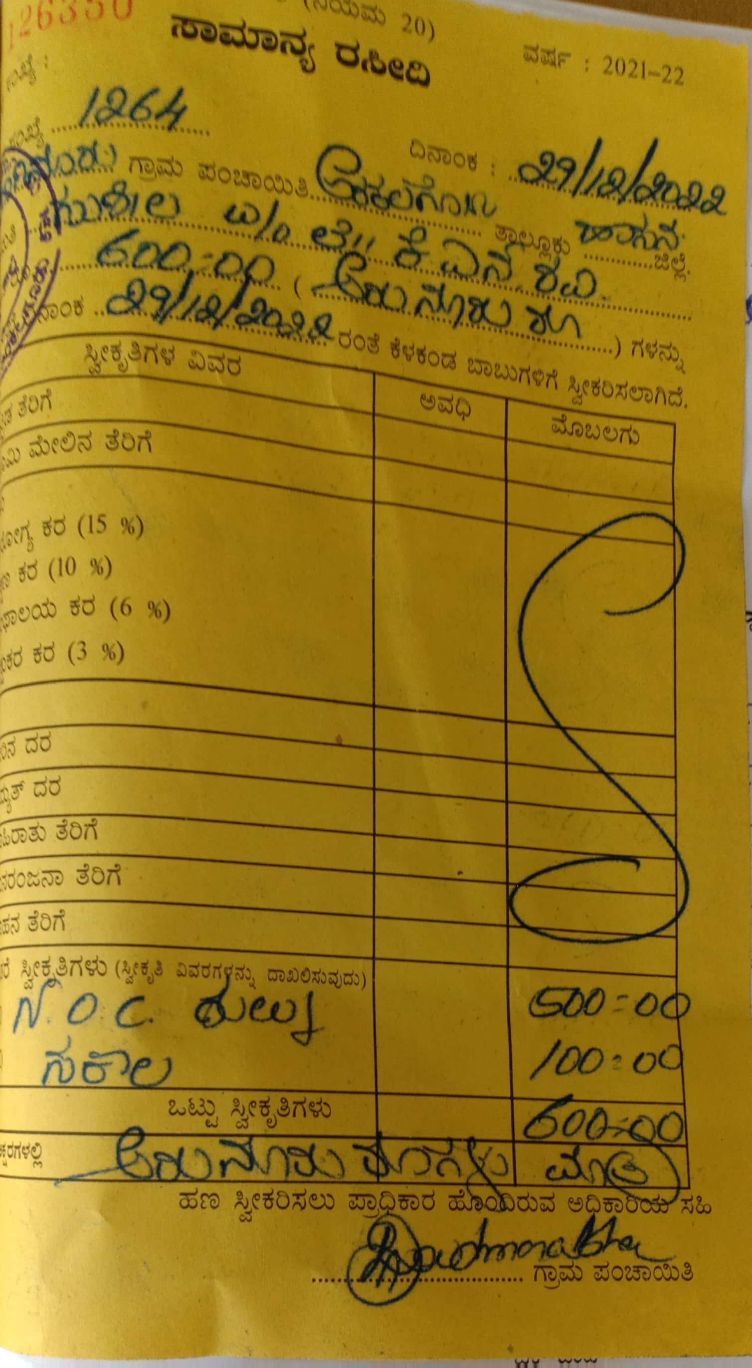 126350
(ನಿಯಮ 20)
ಸಾಮಾನ್ಯ ರಸೀದಿ
ವರ್ಷ : 2021-22
1264
ದಿನಾಂಕ : 29/12/2022
ಗ್ರಾಮ ಪಂಚಾಯಿತಿ ಅರಕಲಗೂಡು ತಾಲ್ಲೂಕು ಹಾಸನ ಜಿಲ್ಲೆ.
ಸುಶೀಲ W/o ಲೇ|| ಕೆ ಎನ್ ರವಿ
600=00 (ಆರು ನೂರು ರೂ) ಗಳನ್ನು
29/12/2022 ರಂತೆ ಕೆಳಕಂಡ ಬಾಬುಗಳಿಗೆ ಸ್ವೀಕರಿಸಲಾಗಿದೆ.
ಸ್ವೀಕೃತಿಗಳ ವಿವರ ಅವಧಿ ಮೊಬಲಗು
ತೆರಿಗೆ
ಮೇಲಿನ ತೆರಿಗೆ
ಕರ (15 %)
ಕರ (10 %)
ಕರ (6 %)
ಕರ (3 %)
ದರ
ದರ
ತೆರಿಗೆ
ತೆರಿಗೆ
ತೆರಿಗೆ
ಸ್ವೀಕೃತಿಗಳು (ಸ್ವೀಕೃತಿ ವಿವರಗಳನ್ನು ದಾಖಲಿಸುವುದು)
N.O.C. ಶುಲ್ಕ 500=00
ಸಕಾಲ 100=00
ಒಟ್ಟು ಸ್ವೀಕೃತಿಗಳು 600=00
ಆರು ನೂರು ರೂಗಳು ಮಾತ್ರ
ಹಣ ಸ್ವೀಕರಿಸಲು ಪ್ರಾಧಿಕಾರ ಹೊಂದಿರುವ ಅಧಿಕಾರಿಯ ಸಹಿ
ಗ್ರಾಮ ಪಂಚಾಯಿತಿ